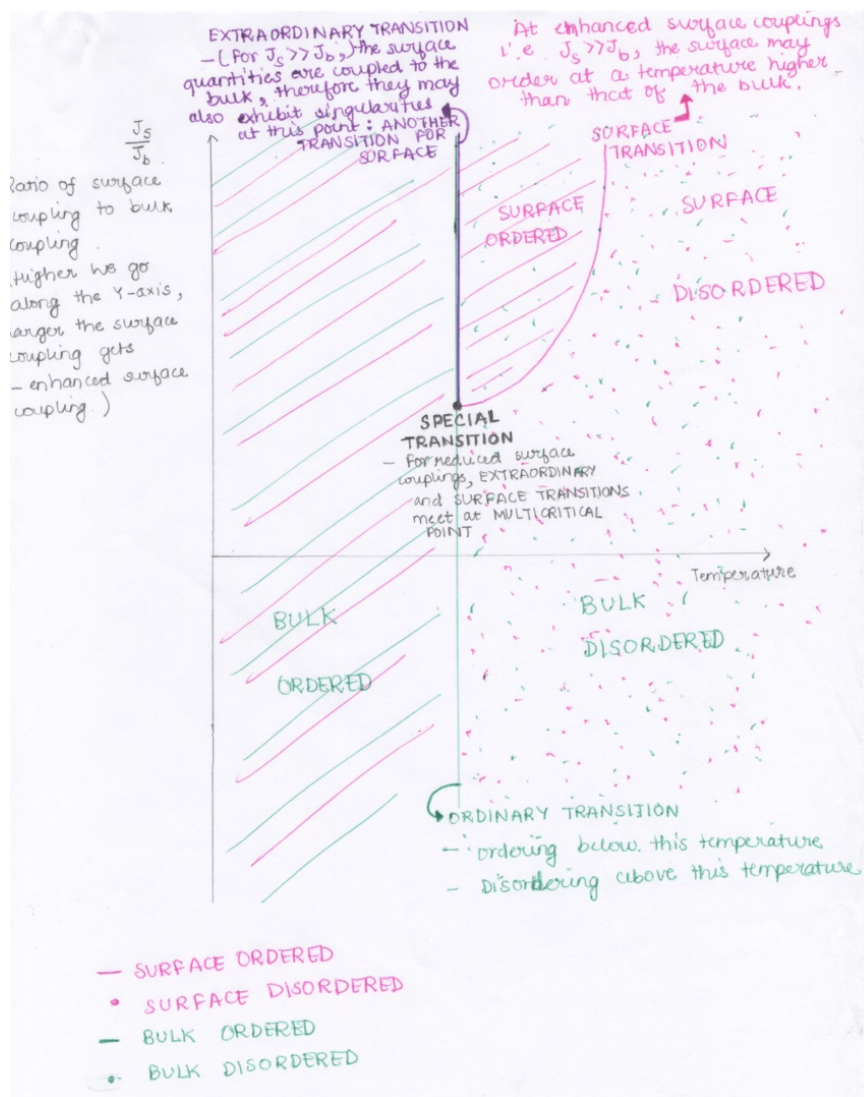 EXTRAORDINARY TRANSITION
– (For Js >> Jb, the surface
quantities are coupled to the
bulk, therefore they may
also exhibit singularities
at this point : ANOTHER
TRANSITION FOR
SURFACE
At enhanced surface couplings
i.e Js >> Jb, the surface may
order at a temperature higher
than that of the bulk.
SURFACE
TRANSITION
Js
Jb
Ratio of surface
coupling to bulk
coupling
Higher we go
along the Y-axis,
larger the surface
coupling gets
– enhanced surface
coupling )
SURFACE
ORDERED
SURFACE
DISORDERED
SPECIAL
TRANSITION
– For reduced surface
couplings, EXTRAORDINARY
and SURFACE TRANSITIONS
meet at MULTICRITICAL
POINT
Temperature
BULK
ORDERED
BULK
DISORDERED
ORDINARY TRANSITION
– ordering below this temperature
– Disordering above this temperature
— SURFACE ORDERED
• SURFACE DISORDERED
— BULK ORDERED
• BULK DISORDERED